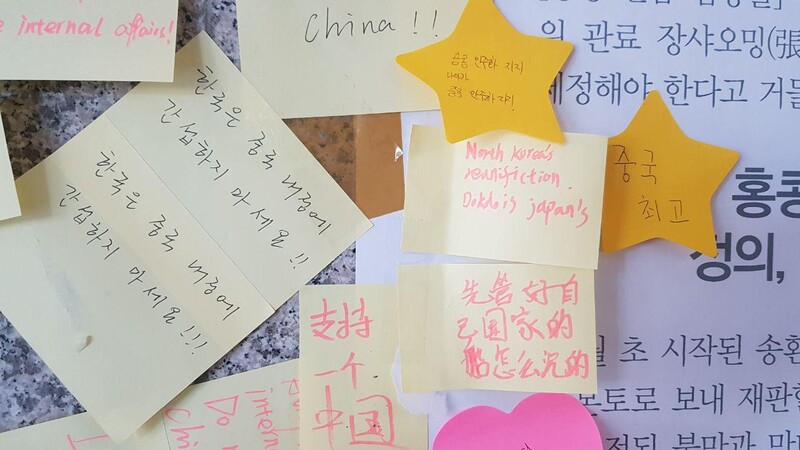 e internal affairs!
China!!
홍콩 민주화 지지
나아가
중국 민주화 지지!
의 관료 장샤오밍(張
제정해야 한다고 거듭
한국은 중국 내정에
간섭하지 마세요!!
한국은 중국 내정에
간섭하지 마세요!!!
North Korea's
reunifiction.
Dokdo is japan's
중국
최고
홍콩
성의,
支持
一个
中国
先管好自
己国家的
船怎么沉的
월 초 시작된 송환
본토로 보내 재판할
intern
Do
Chi